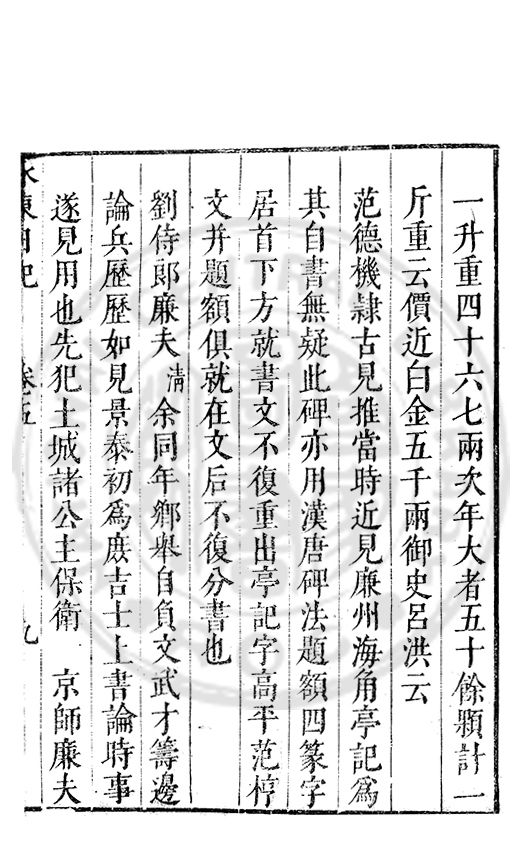 一升重四十六七兩次年大者五十餘顆計一
斤重云價近白金五千兩御史呂洪云
范德機隷古見推當時近見廉州海角亭記爲
其自書無疑此碑亦用漢唐碑法題額四篆字
居首下方就書文不復重出亭記字高平范梈
文并題額俱就在文后不復分書也
劉侍郎廉夫清余同年鄉舉自負文武才籌邊
論兵歷歷如見景泰初爲庶吉士上書論時事
遂見用也先犯土城諸公主保衛 京師廉夫
水東日記 卷五 九